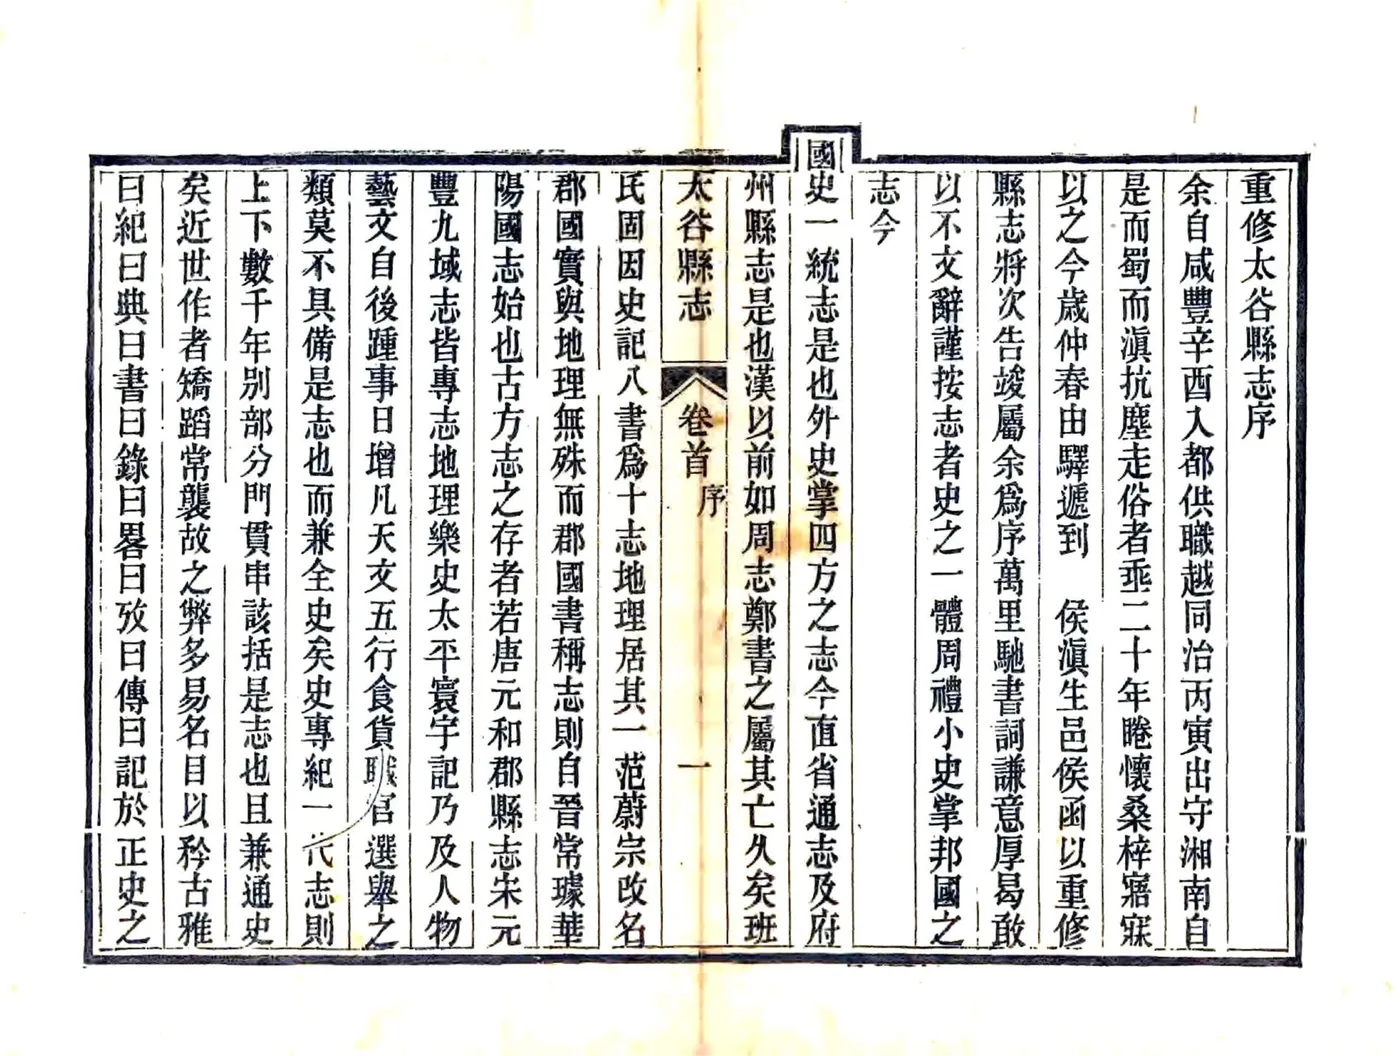 重修太谷縣志序
余自咸豐辛酉入都供職越同治丙寅出守湘南自
是而蜀而滇抗塵走俗者乖二十年睠懷桑梓寤寐
以之今歲仲春由驛遞到 侯滇生邑侯函以重修
縣志將次告竣屬余爲序萬里馳書詞謙意厚曷敢
以不文辭謹按志者史之一體周禮小史掌邦國之
志今
國史一統志是也外史掌四方之志今直省通志及府
州縣志是也漢以前如周志鄭書之屬其亡久矣班
太谷縣志 卷首 序 一
氏固因史記八書爲十志地理居其一范蔚宗改名
郡國實與地理無殊而郡國書稱志則自晉常璩華
陽國志始也古方志之存者若唐元和郡縣志宋元
豐九域志皆專志地理樂史太平寰宇記乃及人物
藝文自後踵事日增凡天文五行食貨職官選舉之
類莫不具備是志也而兼全史矣史專紀一代志則
上下數千年別部分門貫串該括是志也且兼通史
矣近世作者矯蹈常襲故之弊多易名目以矜古雅
曰紀曰典曰書曰錄曰畧曰攷曰傳曰記於正史之